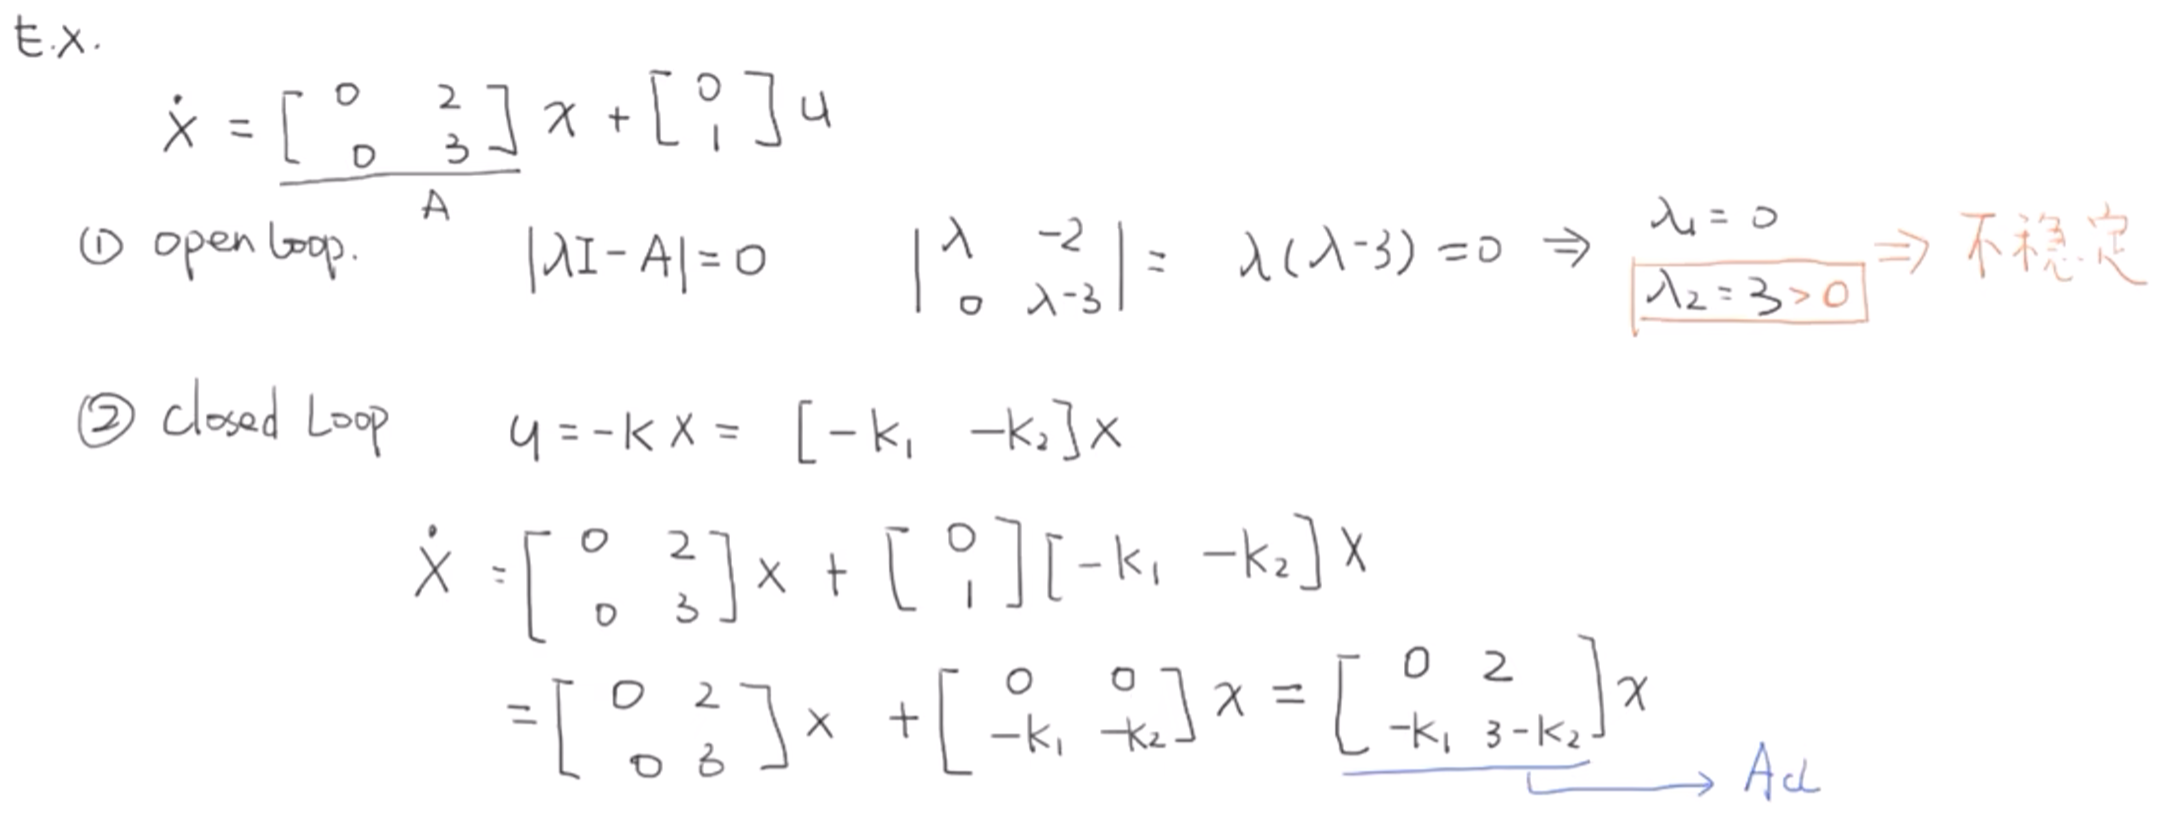 E.X.
ẋ = [0 2; 0 3] x + [0; 1] u
A
① open loop. |λI-A|=0 |λ -2; 0 λ-3| = λ(λ-3)=0 ⇒ λ₁=0 λ₂=3>0 ⇒ 不稳定
② Closed Loop u=-kx= [-k₁ -k₂]x
ẋ = [0 2; 0 3] x + [0; 1][-k₁ -k₂]x
= [0 2; 0 3] x + [0 0; -k₁ -k₂] x = [0 2; -k₁ 3-k₂] x
→ Acl